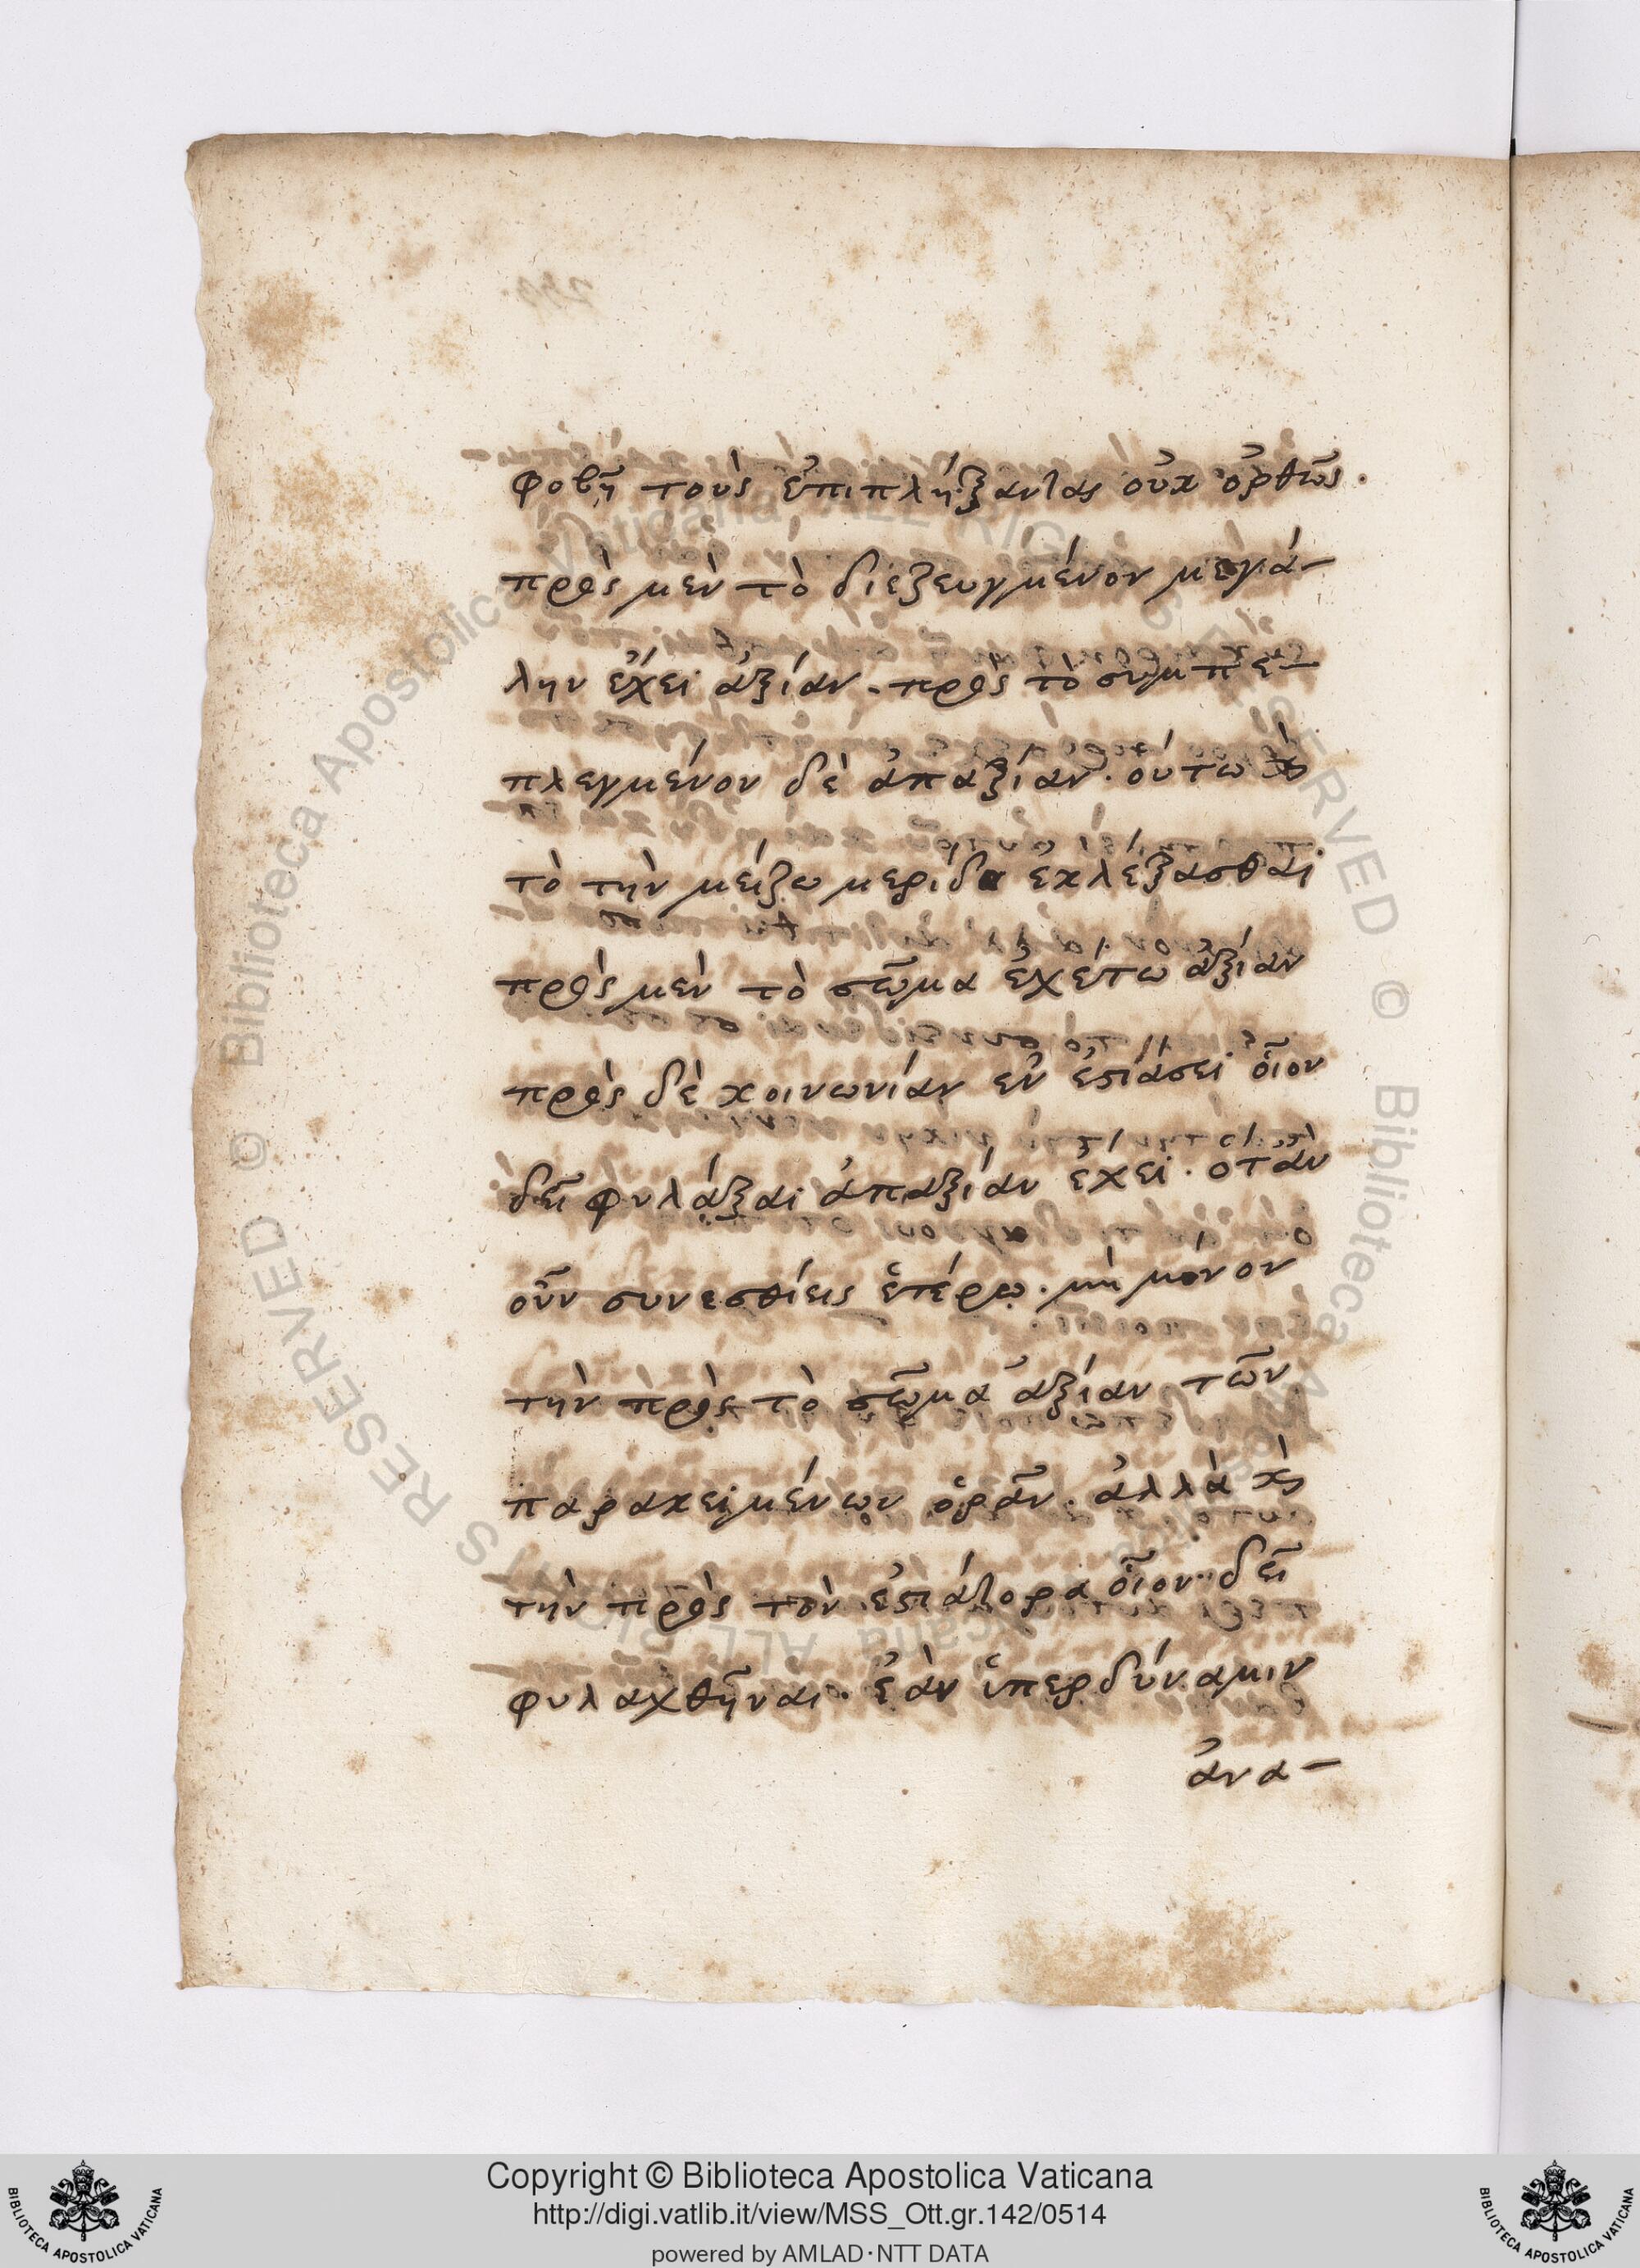 φοβῇ τοὺς ἐπιπλήξαντας οὐκ ὀρθῶς.
πρὸς μὲν τὸ διεζευγμένον μεγά-
λην ἔχει ἀξίαν. πρὸς τὸ συμπε-
πλεγμένον δὲ ἀπαξίαν. οὕτω ϗ
τὸ τὴν μείζω μερίδα ἐκλέξασθαι
πρὸς μὲν τὸ σῶμα ἐχέτω ἀξίαν
πρὸς δὲ κοινωνίαν ἐν ἑστιάσει οἷον
δεῖ φυλάξαι ἀπαξίαν ἔχει. ὅταν
οὖν συνεσθίεις ἑτέρῳ. μὴ μόνον
τὴν πρὸς τὸ σῶμα ἀξίαν τῶν
παρακειμένων ὁρᾶν. ἀλλὰ ϗ
τὴν πρὸς τὸν ἑστιάτορα οἷον δεῖ
φυλαχθῆναι. ἐὰν ὑπερδύναμιν
ἀνα-
Copyright © Biblioteca Apostolica Vaticana
http://digi.vatlib.it/view/MSS_Ott.gr.142/0514
powered by AMLAD·NTT DATA
BIBLIOTECA APOSTOLICA VATICANA
BIBLIOTECA APOSTOLICA VATICANA